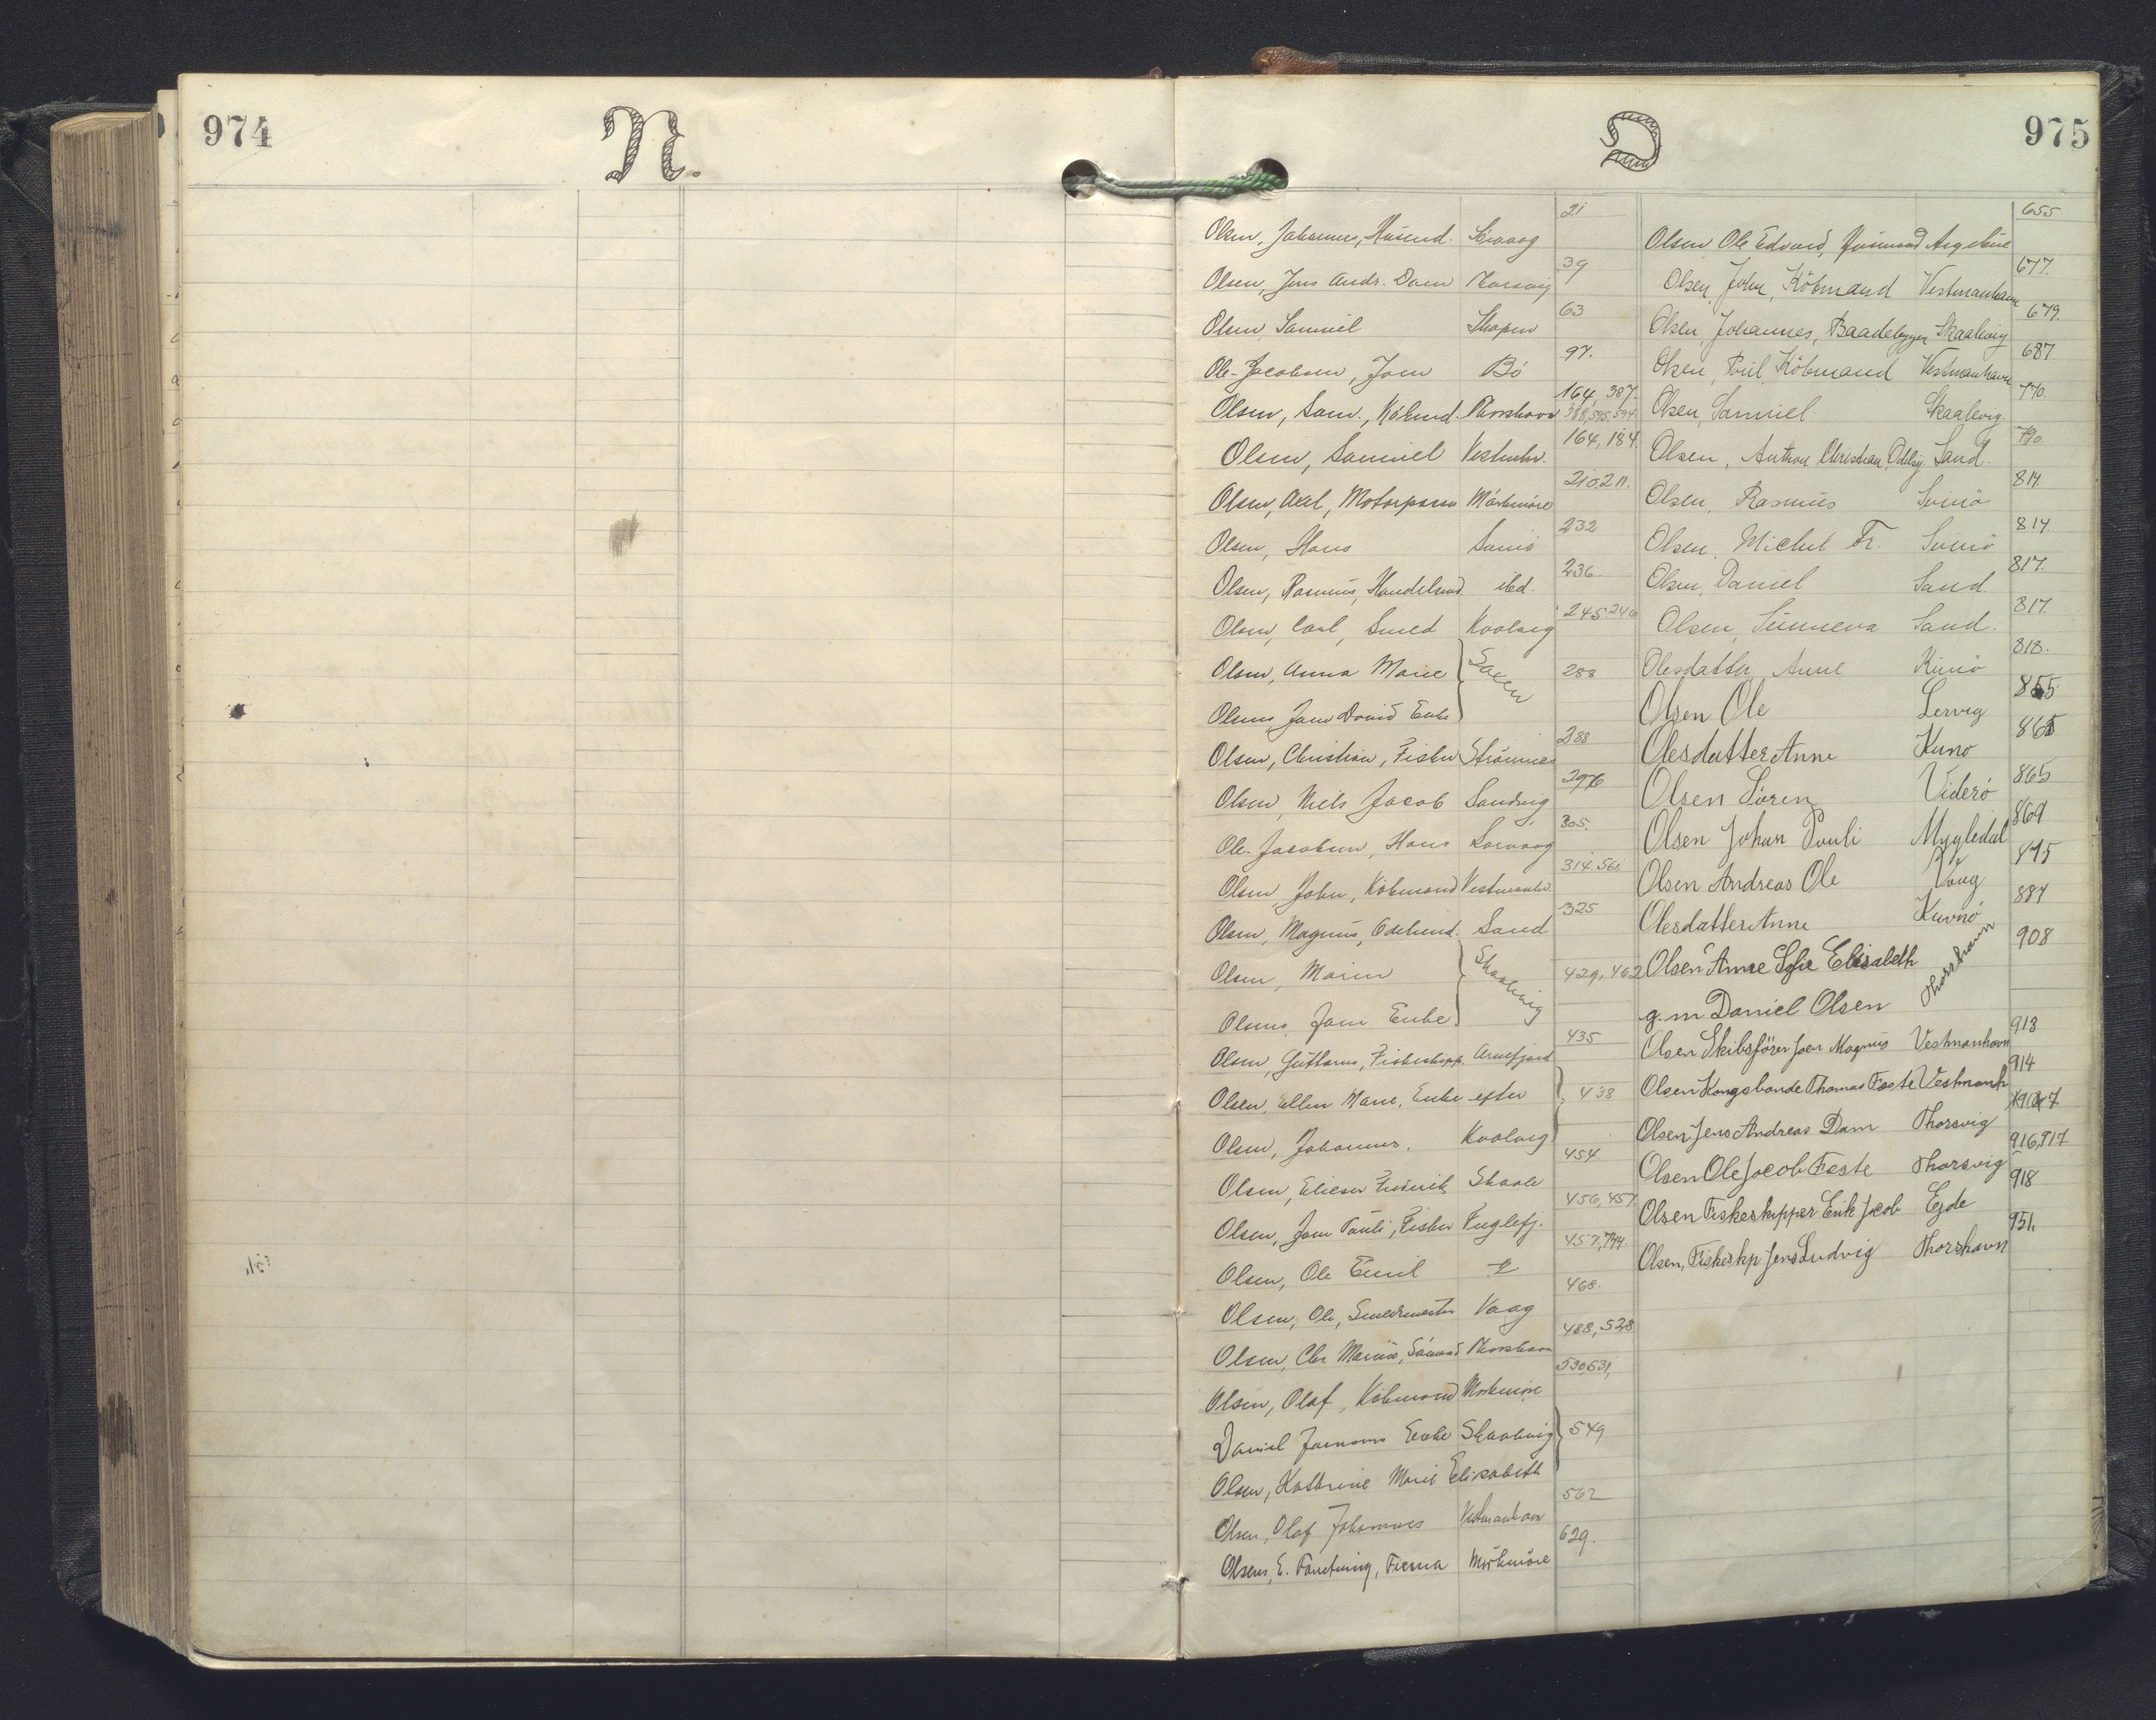 974
N.
O
975
Olsen, Johannes, Husmd. Sörvaag 21
Olsen, Jens Andr. Dam Thorsvig 39
Olsen, Samuel Skopen 63
Ole-Jacobsen, Joen Bö 97.
Olsen, Sam., Köbmd. Thorshavn 164, 387. 388, 595. 594
Olsen, Samuel Vestmhv. 164, 184.
Olsen, Axel, Motorpasser Mörkmöre 210. 211.
Olsen, Hans Sumö 232
Olsen, Rasmus, Handelsmd. ibd. 236.
Olsen, Carl, Smed Kvalvig 245. 246
Olsen, Anna Marie } Saxen 288
Olsens Joen David Enke
Olsen, Christian, Fisker Strömnæs 288
Olsen, Niels Jacob Sandvig 296
Ole-Jacobsen, Hans Sörvaag 305.
Olsen, John, Köbmand Vestmanhv. 314. 561.
Olsen, Magnus, Odelsmd. Sand 325
Olsen, Maren } Skaalevig 429, 462
Olsens Joen Enke
Olsen, Guttorm, Fiskeskipp. Arnefjord 435
Olsen, Ellen Marie, Enke efter } 438
Olsen, Johannes. Kvalvig
Olsen, Elieser Frederik Skaale 454.
Olsen, Joen Pauli, Fisker Fuglefj. 456, 457.
Olsen, Ole Emil 457, 744.
Olsen, Ole, Smedmester Vaag 468.
Olsen, Chr. Marius, Sömand Thorshavn 488, 528
Olsen, Olaf, Köbmand Mörkmöre 530, 631,
Daniel Joensens Enke Skaalevig } 549
Olsen, Kathrine Marie Elisabeth
Olsen, Olaf Johannes Vestmanhavn 562
Olsens, E. Forretning, Firma Mörkmöre 629.
Olsen, Ole Edvard, Husmand Argebüe 655
Olsen, John, Köbmand Vestmanhavn 677.
Olsen, Johannes, Baadebygger Skaalevig 679.
Olsen, Poul, Köbmand Vestmanhavn 687.
Olsen, Samuel Skaalevig. 770.
Olsen, Anthon Christian Sand. 790.
Olsen, Rasmus Sumö 814.
Olsen, Michel Fr. Sumö 814.
Olsen, Daniel Sand. 817.
Olsen, Sunneva Sand. 817.
Olesdatter, Anne Kunö 818.
Olsen Ole Lervig 855
Olesdatter Anne Kunö 865
Olsen Sören Viderö 865
Olsen Johan Pauli Mygledal 869
Olsen Andreas Ole Vaag 875
Olesdatter Anne Kuvnö 884
Olsen Anne Sofie Elisabeth Thorshavn 908
g. m Daniel Olsen
Olsen Skibsfören Joen Magnus Vestmanhavn 913
Olsen Kongsbonde Thomas Faste Vestmanh 914
Olsen Jens Andreas Dam Thorsvig
Olsen Ole Jacob Faste Thorsvig 916, 917
Olsen Fiskeskipper Erik Jacob Ejde 918
Olsen, Fiskeskp Jens Ludvig Thorshavn 951.